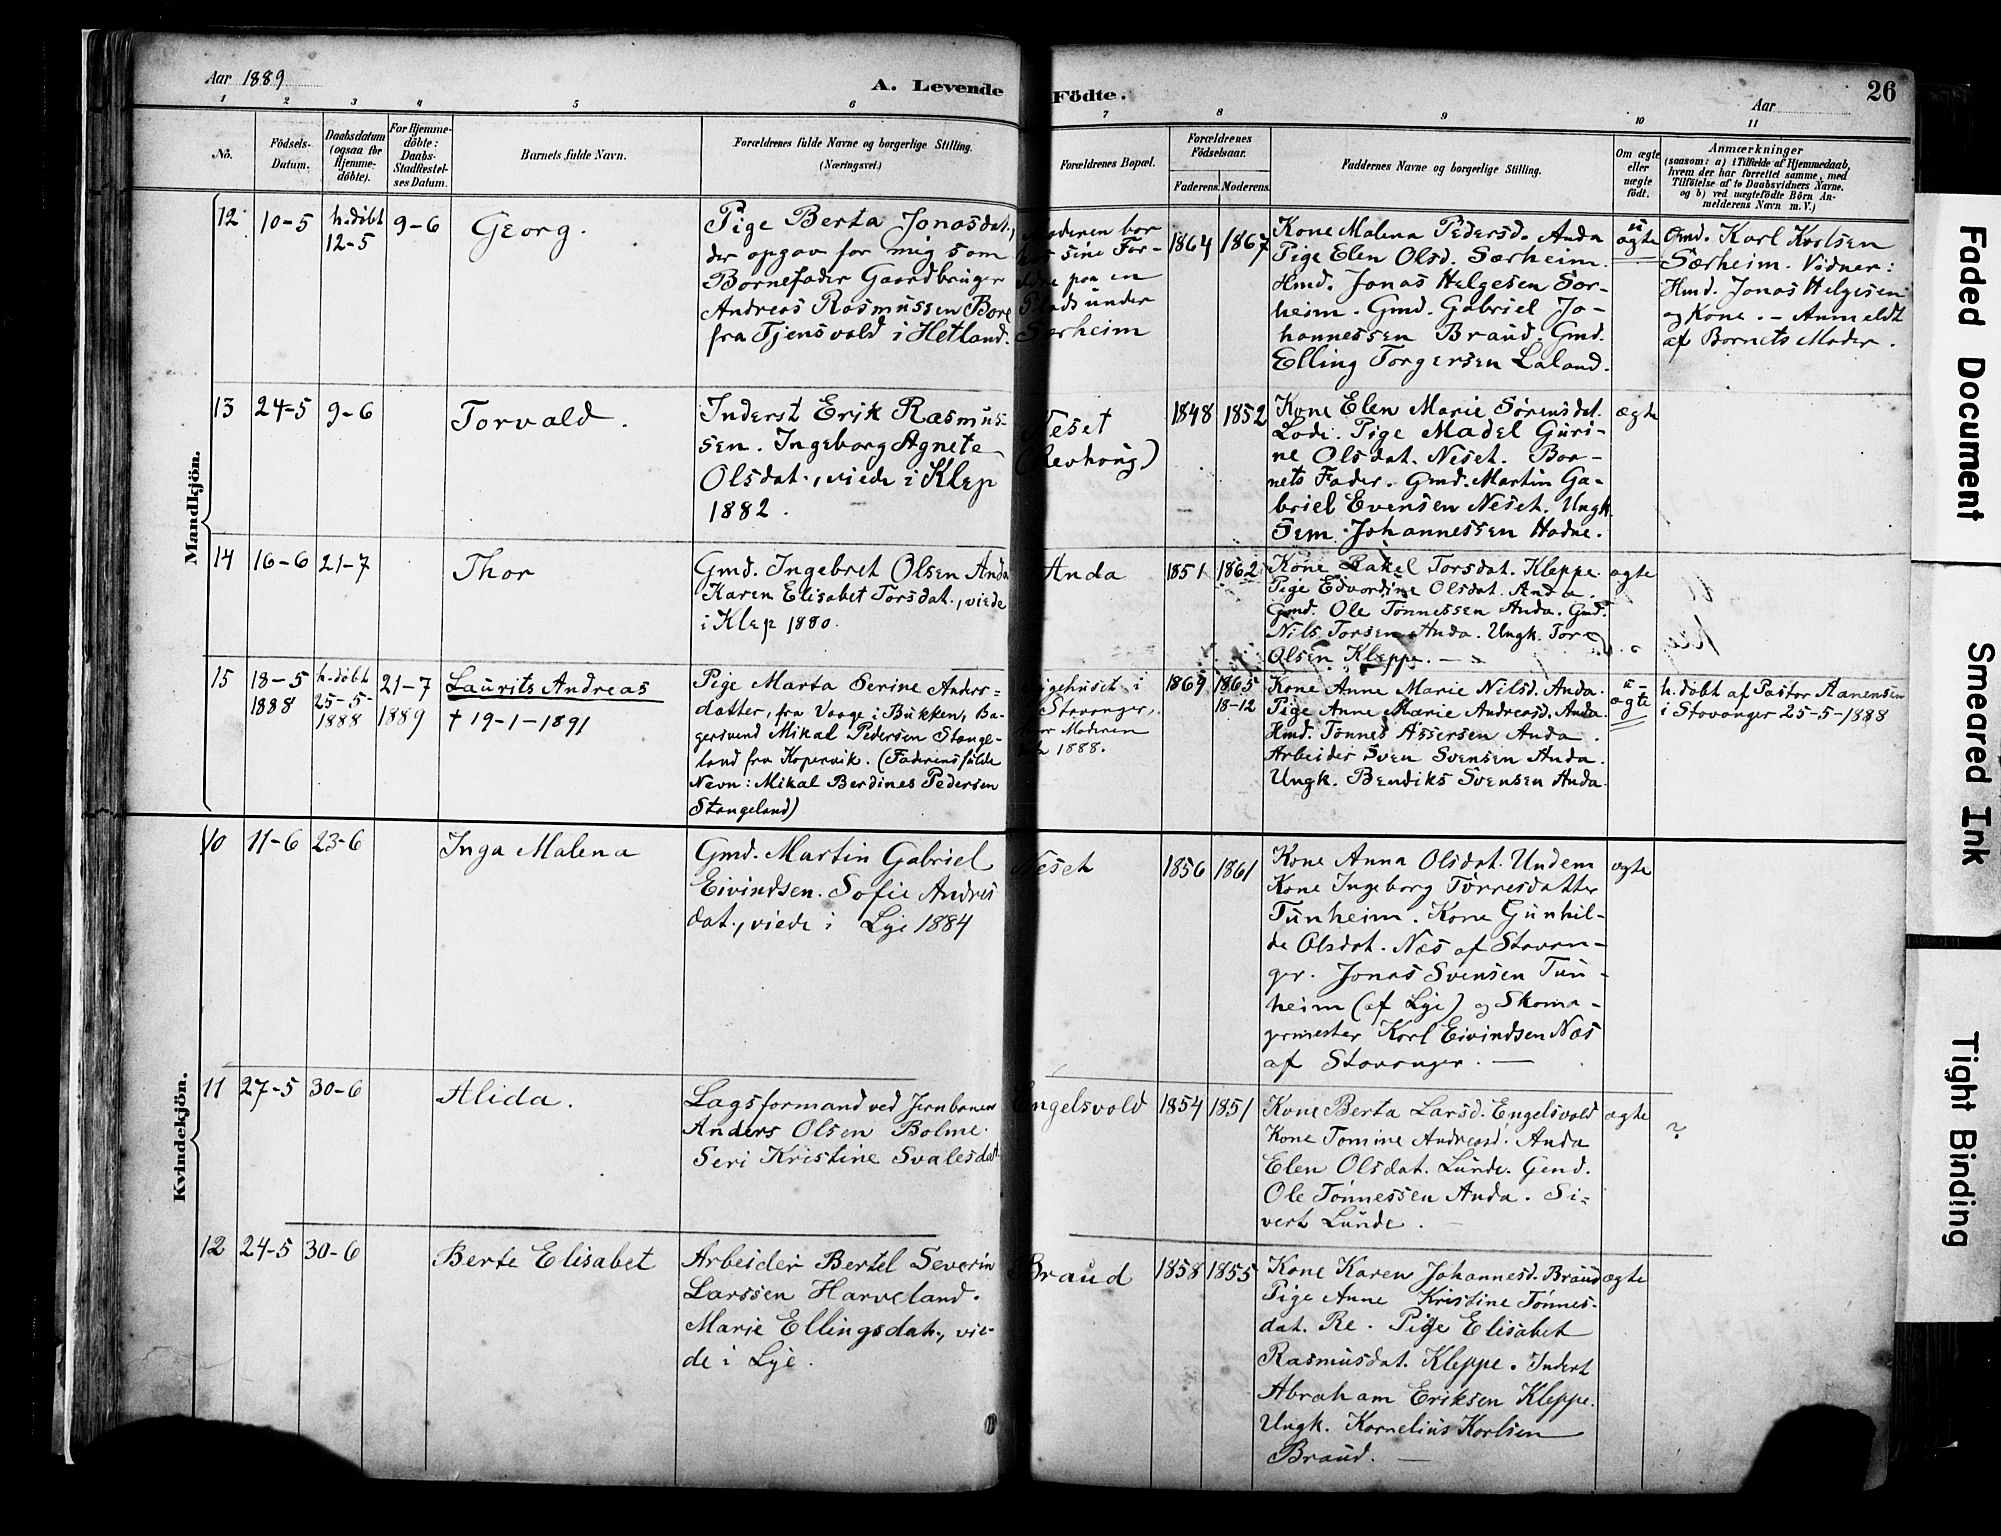 Aar 1889
A. Levende Födte.
Aar
26
1
2
3
4
5
6
7
8
9
10
11
No.
Födsels-
Datum.
Daabsdatum
(ogsaa for
Hjemme-
döbte).
For Hjemme-
döbte:
Daabs-
Stadfæstel-
ses Datum.
Barnets fulde Navn.
Forældrenes fulde Navne og borgerlige Stilling.
(Næringsvei.)
Forældrenes Bopæl.
Forældrenes
Födselsaar.
Faderens.
Moderens.
Faddernes Navne og borgerlige Stilling.
Om ægte
eller
uægte
födt.
Anmærkninger
(saasom: a) i Tilfælde af Hjemmedaab,
hvem der har forrettet samme, med
Tilföielse af to Daabsvidners Navne,
og b) ved uægtefödte Börn An-
melderens Navn m. V.)
Mandkjön.
12
10-5
h.døbt
12-5
9-6
Georg.
Pige Berta Jonasdat.,
der opgav for mig som
Barnefader Gaardbruger
Andreas Rasmussen Bore
fra Tjensvold i Hetland.
Moderen bor
hos sine For-
ældre paa en
Plads under
Særheim
1864
1867
Kone Malena Pedersd. Anda
Pige Elen Olsd. Særheim.
Hmd. Jonas Helgesen Sær-
heim. Gmd. Gabriel Jo-
hannessen Braud. Gmd.
Elling Torgersen Laland.
u
ægte
Gmd. Karl Karlsen
Særheim. Vidner:
Hmd. Jonas Helgesen
og Kone. - Anmeldt
af Barnets Moder.
13
24-5
9-6
Torvald.
Inderst Erik Rasmus-
sen. Ingeborg Agnete
Olsdat., viede i Klep
1882.
Neset
(Revhoug)
1848
1852
Kone Elen Marie Sørensdat.
Lode. Pige Madel Guri-
ne Olsdat. Neset. Bar-
nets Fader. Gmd. Martin Ga-
briel Evensen Neset. Ungk.
Sem. Johannessen Hodne.
ægte
14
16-6
21-7
Thor
Gmd. Ingebret Olsen Anda
Karen Elisabet Torsdat., viede
i Klep 1880.
Anda
1851
1862
Kone Rakel Torsdat. Kleppe.
Pige Edvardine Olsdat. Anda.
Gmd. Ole Tønnessen Anda. Gmd.
Nils Torsen Anda. Ungk. Tore
Olsen Kleppe. -
ægte
15
18-5
1888
h.døbt
25-5-
1888
21-7
1889
Laurits Andreas
† 19-1-1891
Pige Marta Serine Anders=
datter, fra Vaage i Bukken, Ba-
gersvend Mikal Pedersen Stange-
land fra Kopervik. (Faderens fulde
Navn: Mikal Berdines Pedersen
Stangeland)
Sygehuset i
Stavanger,
1888.
1869
1865
18-12
Kone Anne Marie Nilsd. Anda.
Pige Anne Marie Andreasd. Anda
Hmd. Tønnes Assersen Anda.
Arbeider Sven Svensen Anda.
Ungk. Bendiks Svensen Anda.
u-
ægte
h.døbt af Pastor Aanensen
i Stavanger 25-5-1888
Kvindekjön.
10
11-6
23-6
Inga Malena
Gmd. Martin Gabriel
Eivindsen. Sofie Andreas
dat., viede i Lye 1884
Neset
1856
1861
Kone Anna Olsdat. Undem
Kone Ingeborg Tørresdatter
Tunheim. Kone Gunhil-
de Olsdat. Næs af Stavan-
ger. Jonas Svensen Tun-
heim (af Lye) og Skoma-
germester Karl Eivindsen Næs
af Stavanger. -
ægte
11
27-5
30-6
Alida.
Lagsformand ved Jernbanen
Anders Olsen Bolme.
Seri Kristine Svalesdat.
Engelsvold
1854
1851
Kone Berta Larsd. Engelsvold
Kone Tomine Andreasd. Anda
Elen Olsdat. Lunde. Gmd.
Ole Tønnessen Anda. Si-
vert Lunde.
ægte
?
12
24-5
30-6
Berte Elisabet
Arbeider Bertel Severin
Larssen Harveland.
Marie Ellingsdat., vie-
de i Lye.
Braud
1858
1855
Kone Karen Johannesd. Braud
Pige Anne Kristine Tønnes-
dat. Re. Pige Elisabet
Rasmusdat. Kleppe. Inderst
Abraham Eriksen Kleppe.
Ungk. Kornelius Karlsen
Braud. -
ægte
Faded Document
Smeared Ink
Tight Binding